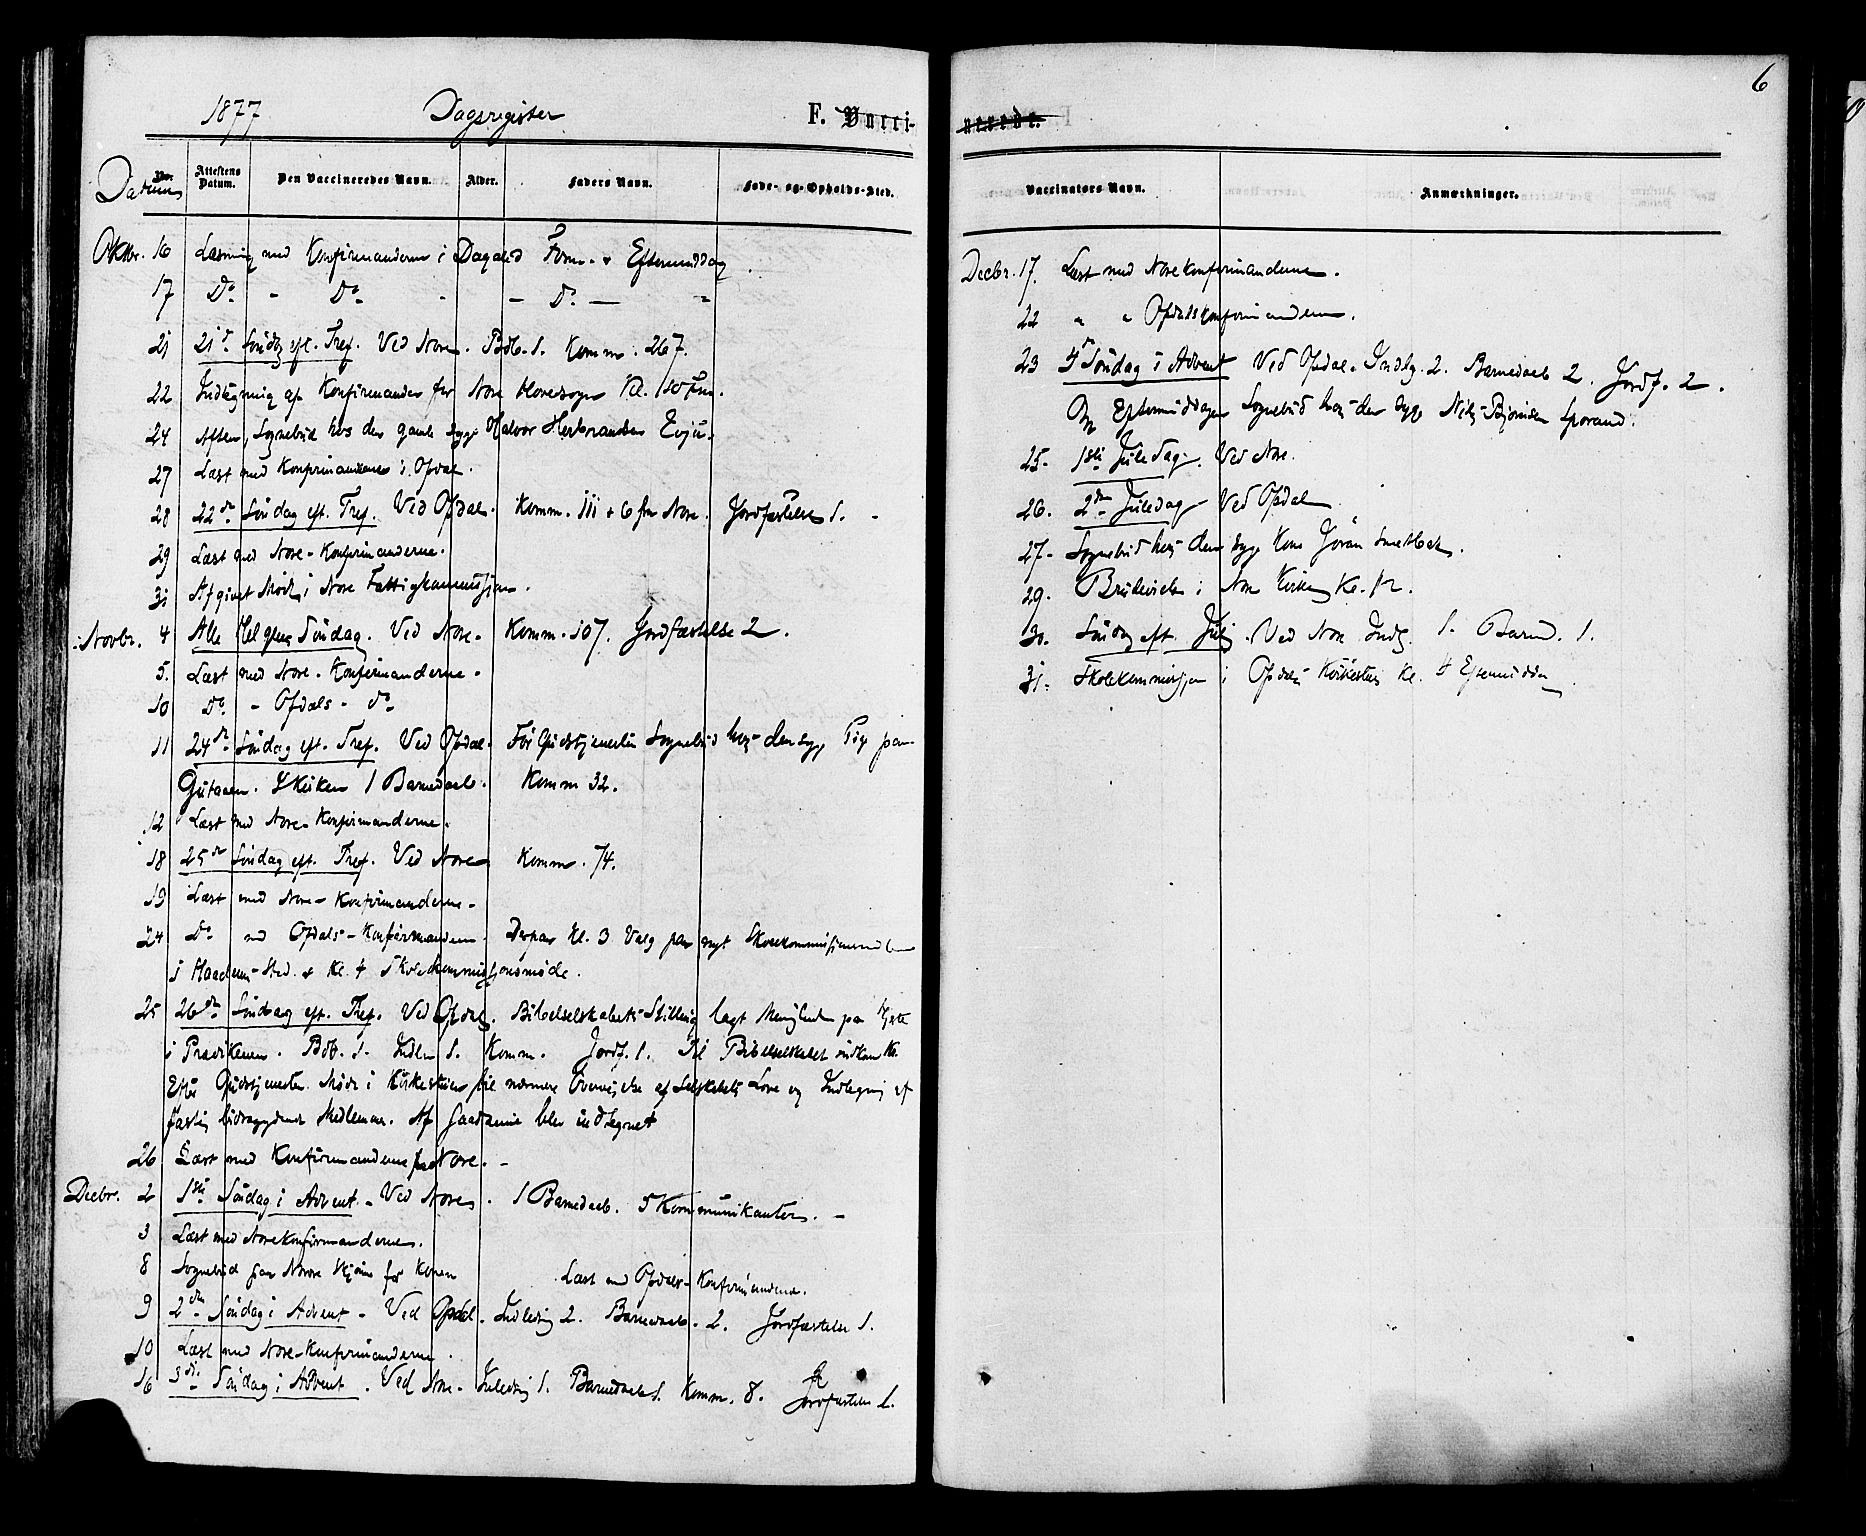 1877 Dagsregister F. Vacci-
Datum Nr. Attestens Datum. Den Vaccineredes Navn. Alder. Faders Navn. Føde- og Opholds-Sted.
Oktbr. 16 Læsning med Konfirmanderne i Dagalid Form. + Eftermiddag.
17 Do. - Do. - - Do. - -
21 21de Søndag eft. Tref. Ved Nore. Bdb. 1. Komm. 267.
22 Indtegning af Konfirmander for Nore Hovedsogn Kl. 10 Fm.
24 Aften, Sognebud hos den gamle syge Halvor Herbrandsen Evju.
27 Læst med Konfirmanderne i Opdal.
28 22de Søndag eft. Tref. Ved Opdal. Komm. 111 + 6 fra Nore. Jordfæstelse 1. -
29 Læst med Nore-Konfirmanderne.
31 Afgivet Møde i Nore Fattigkommission.
Novbr. 4 Alle Helgens Søndag. Ved Nore. Komm. 107. Jordfæstelse 2.
5. Læst med Nore-Konfirmanderne.
10 Do. - Opdals- do.
11 24de Søndag eft. Tref. Ved Opdal. Før Gudstjenesten Sognebud hos den syge Pige paa
Komm 32. I Kirken 1 Barnedaab.
12 Læst med Nore-Konfirmanderne.
18 25de Søndag eft. Tref. Ved Nore Komm. 74.
19 Læst med Nore-Konfirmanderne.
24 Do. med Opdals-Konfirmanderne. Derpaa Kl. 3 Valg paa nyt Skolekommissionsmedlem
i Sted. & Kl. 4 Skolekommissjonsmøde.
25 26de Søndag eft. Tref. Ved Opdal. Bibelselskabets Stilling lagt Menigheden paa Hjerte
i Prædikenen. Bdb. 1. Indlen 1. Komm. Jordf. 1. Til Bibelselskabet indkom Kr.
Efter Gudstjenesten Møde i Kirkestuen til nærmere Overveielse af Selskabets Love og Indtegning af
faste bidragydende Medlemmer. Af saadanne blev indtegnet
26 Læst med Konfirmanderne fra Nore. -
Decbr. 2 1ste Søndag i Advent. Ved Nore. 1 Barnedaab. 5 Kommunikanter. -
3 Læst med Norekonfirmanderne.
8 Sognebud paa for Konen Læst med Opdals-Konfirmanderne.
9 2den Søndag i Advent - Ved Opdal. Indledning 2. Barnedaab. 2. Jordfæstelse 1.
10 Læst med Nore-Konfirmanderne.
16 3die Søndag i Advent. Ved Nore. Indledning 1. Barnedaab 1. Komm. 8. Jordfæstelse 1.
6
nerede.
Vaccinators Navn. Anmærkninger.
Decbr. 17. Læst med Norekonfirmanderne.
22 " " Opdalskonfirmanderne.
23 4de Søndag i Advent Ved Opdal. Indlg. 2. Barnedaab 2. Jordf. 2.
Om Eftermiddagen Sognebud hos den syge Nils Bjørnsen Sporand.
25. 1ste Juledag. Ved Nore.
26. 2den Juledag Ved Opdal
27. Sognebud hos den syge Kone Jøran
29. Brudevielse i Nore Kirke Kl. 12.
30. Søndag eft. Jul. Ved Nore Indlg. 1. Barned. 1.
31. Skolekommissjon i Opdals Kirkestue Kl. 4 Eftermiddag